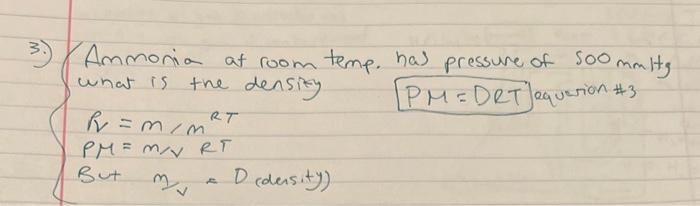 3.) Ammonia at room temp. has pressure of 500 mmHg
what is the density PM = DRT equation #3
Pv = m/m RT
PM = m/v RT
But m/v = D (density)